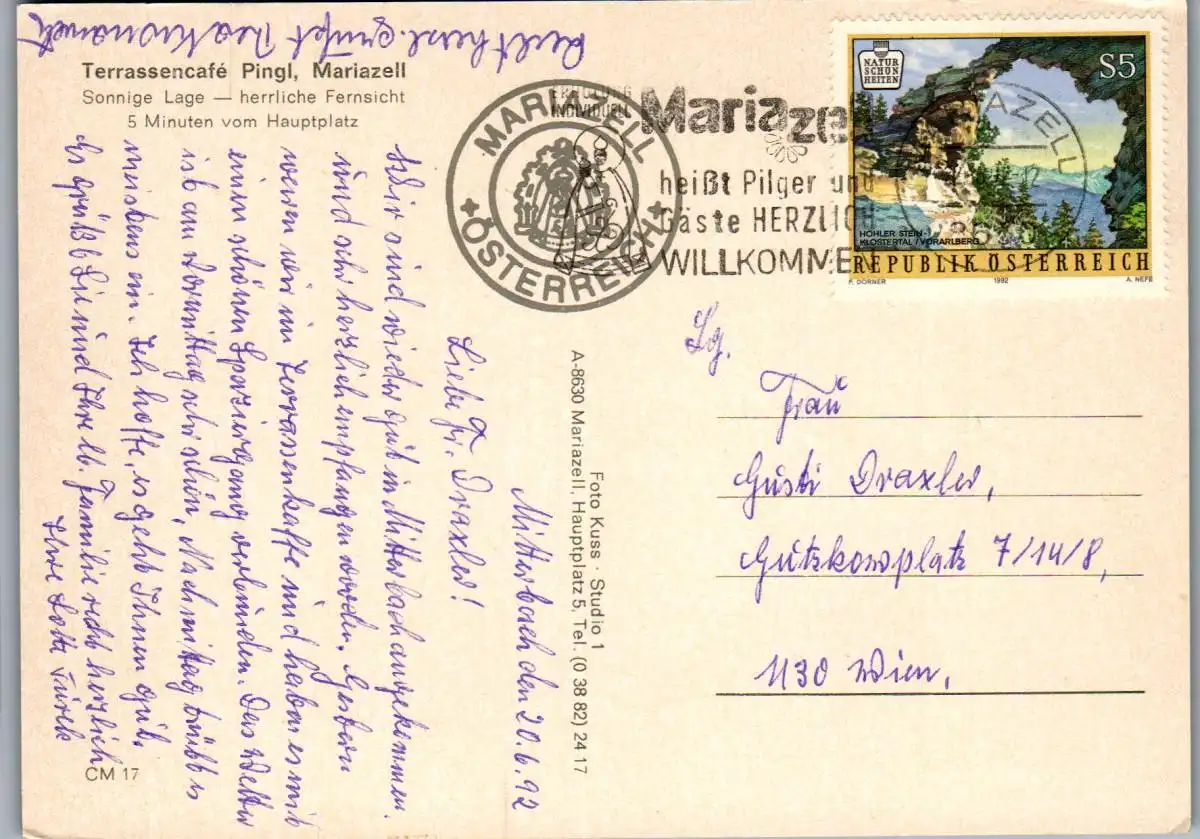 Recht herzl. grüßt
Terrassencafé Pingl, Mariazell
Sonnige Lage — herrliche Fernsicht
5 Minuten vom Hauptplatz
Mitterbach den 20.6.92
Liebe Fr. Draxler!
Wir sind wieder gut in Mitterbach angekommen.
und sehr herzlich empfangen worden. Gestern
waren wir im Terrassenkaffe und haben es mit
einen schönen Spaziergang verbunden. Das Wetter
ist am Vormittag sehr schön, Nachmittag trübt es
meistens ein. Ich hoffe, es geht Ihnen gut.
Es grüßt Sie und Ihre lb. Familie recht herzlich
Ihre Lotte
CM 17
Foto Kuss · Studio 1
A-8630 Mariazell, Hauptplatz 5, Tel. (0 38 82) 24 17
MARIAZELL
ÖSTERREICH
ERHOLUNG
INDIVIDUELL
Mariazell
heißt Pilger und
Gäste HERZLICH
WILLKOMMEN
NATUR
SCHÖN
HEITEN
S5
HOHLER STEIN -
KLOSTERTAL / VORARLBERG
REPUBLIK ÖSTERREICH
F. DÖRNER 1992 A. NEFE
Sg.
Frau
Gusti Draxler,
Gutzkowplatz 7/14/8,
1130 Wien,